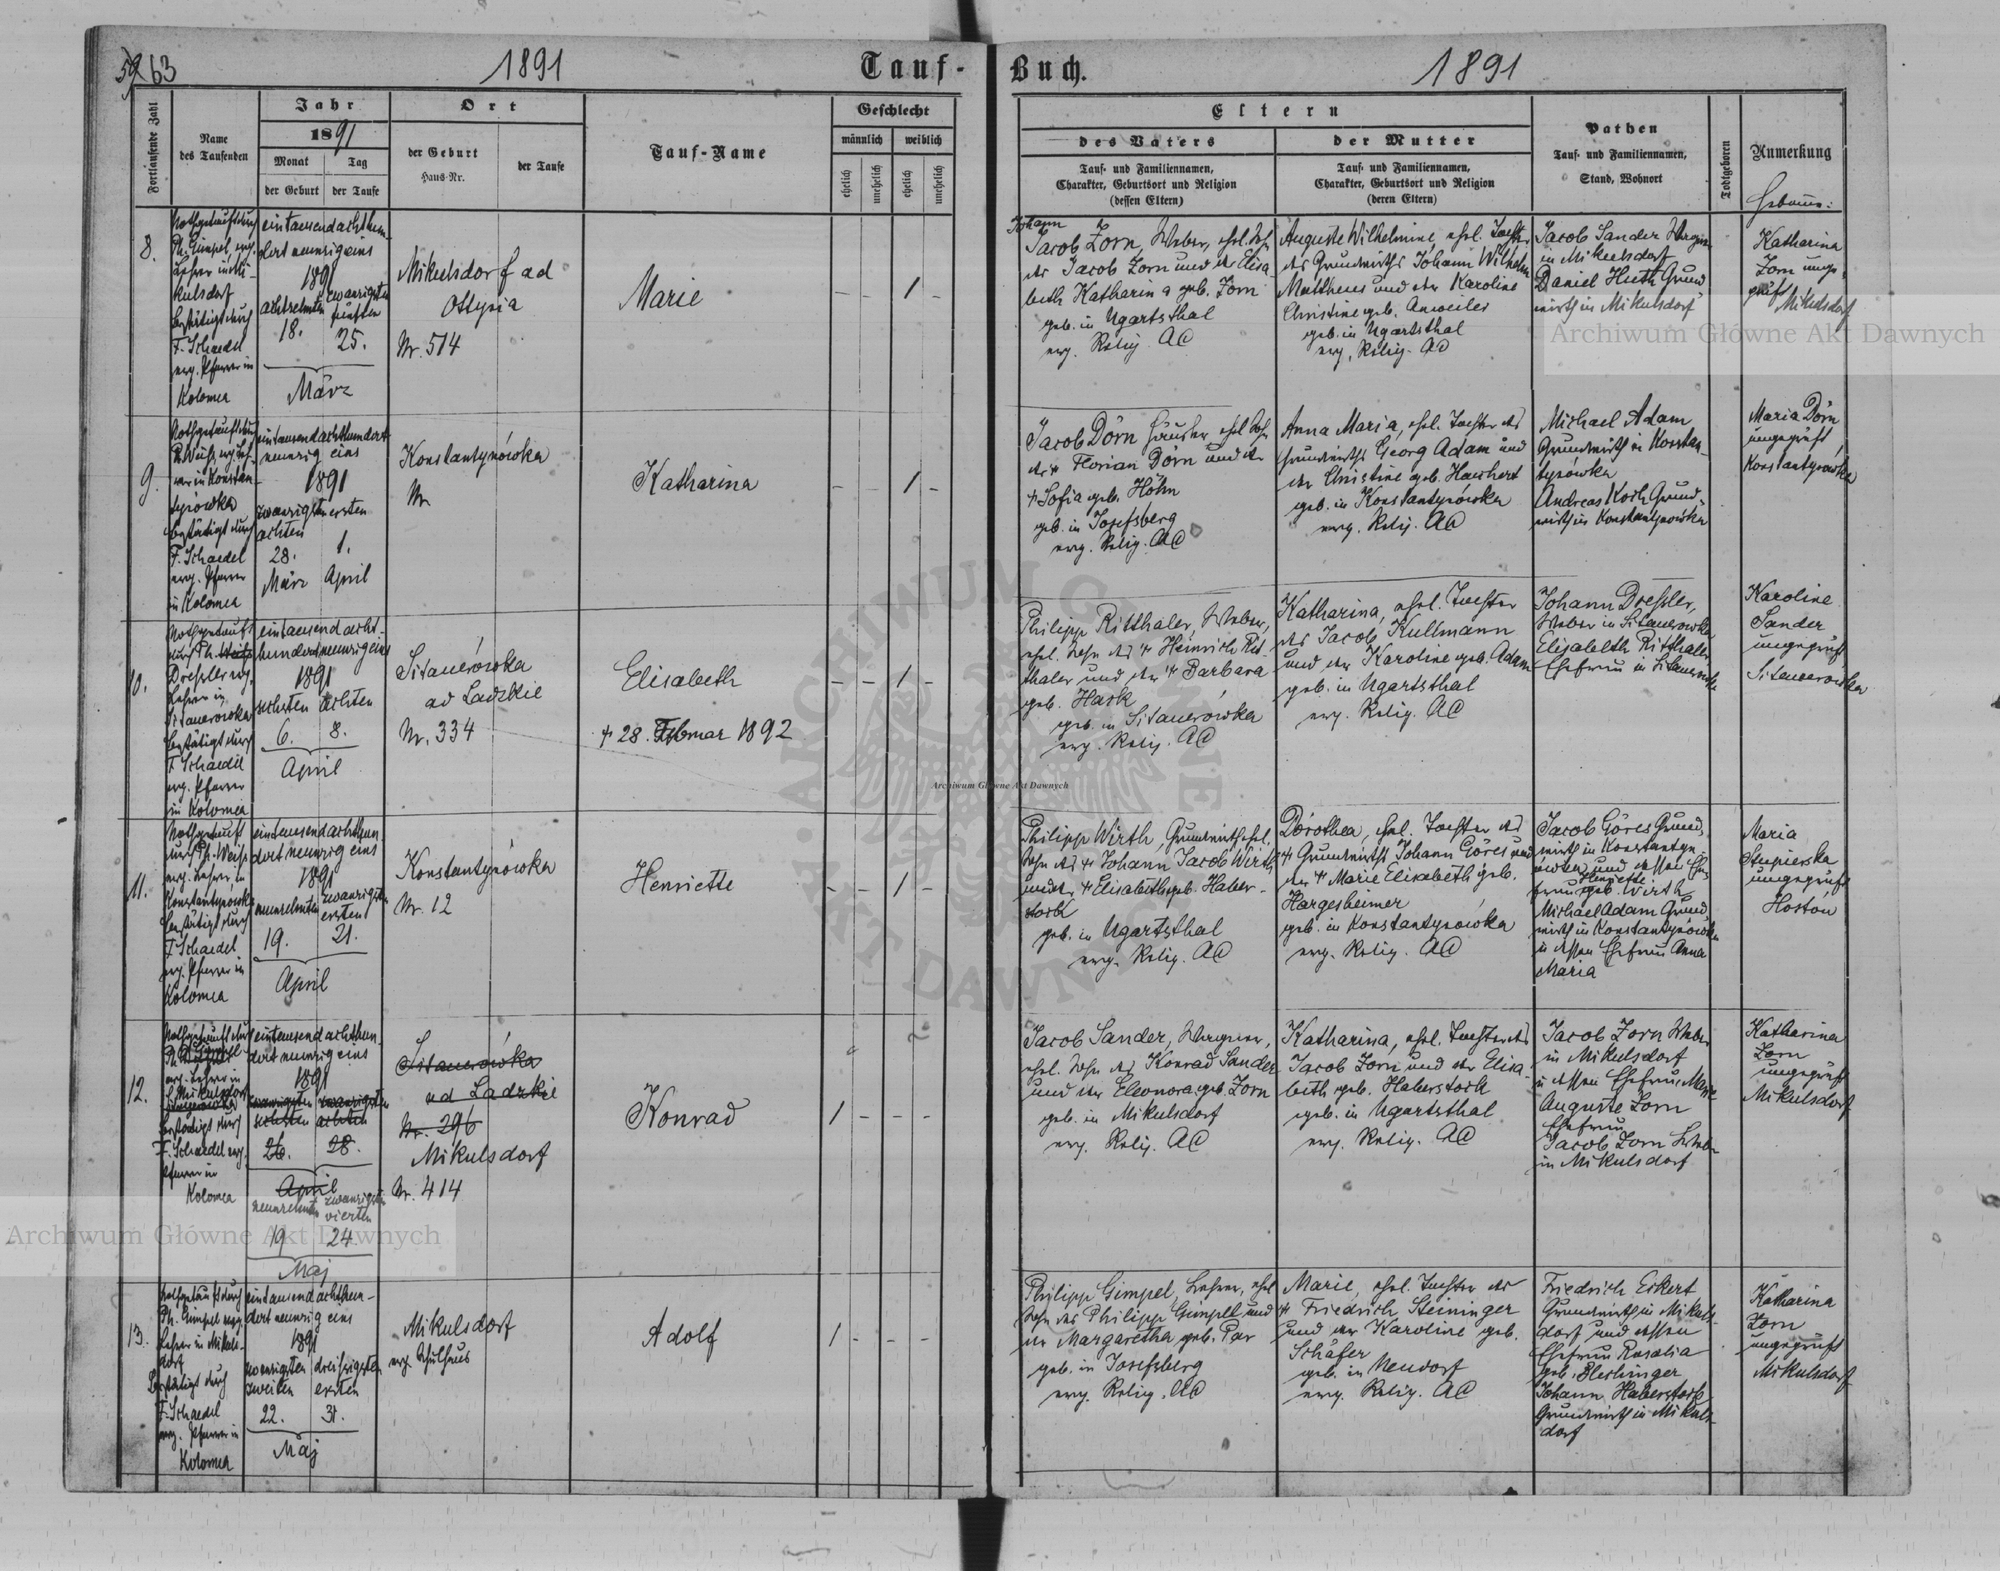 59 63
1891
Tauf-
Buch.
1891
Fortlaufende Zahl
Name
des Taufenden
Jahr
1891
Monat
Tag
der Geburt
der Taufe
Ort
der Geburt
Haus-Nr.
der Taufe
Tauf-Name
Geschlecht
männlich
weiblich
ehelich
unehelich
ehelich
unehelich
Eltern
des Vaters
Tauf- und Familiennamen,
Charakter, Geburtsort und Religion
(dessen Eltern)
der Mutter
Tauf- und Familiennamen,
Charakter, Geburtsort und Religion
(deren Eltern)
Pathen
Tauf- und Familiennamen,
Stand, Wohnort
Todtgeboren
Anmerkung
Hebamme:
8.
Nothgetauft durch
Ph. Gimpel, evg.
Lehrer in Mi-
kulsdorf
bestätigt durch
F. Schaedel
evg. Pfarrer in
Kolomea
eintausendachthun-
dert neunzig eins
1891
achtzehnten
zwanzigsten
fünften
18.
25.
März
Mikulsdorf ad
Ottynia
Nr. 514
Marie
- - 1 -
Johann
Jacob Zorn, Weber, ehel. Sohn
des Jacob Zorn und der Elisa
beth Katharina geb. Zorn
geb. in Ugartsthal
evg. Relig. AC
Auguste Wilhelmine, ehel. Tochter
des Grundwirths Johann Wilhelm
Mattheus und der Karoline
Christine geb. Anweiler
geb. in Ugartsthal
evg. Relig. AC
Jacob Sander Wagner
in Mikulsdorf
Daniel Huth Grund
wirth in Mikulsdorf
Katharina
Zorn unge-
prüft
Mikulsdorf
9.
Nothgetauft durch
P. Weiss, evg. Leh-
rer in Konstan-
tynówka
bestätigt durch
F. Schaedel
evg. Pfarrer
in Kolomea
eintausendachthundert
neunzig eins
1891
zwanzigsten
achten
ersten
28.
1.
März
April
Konstantynówka
Nr.
Katharina
- - 1 -
Jacob Dörn Häusler, ehel. Sohn
des + Florian Dörn und der
+ Sofia geb. Höhn
geb. in Josefsberg
evg. Relig. AC
Anna Maria, ehel. Tochter des
Grundwirths Georg Adam und
der Christine geb. Haushert
geb. in Konstantynówka
evg. Relig. AC
Michael Adam
Grundwirth in Konstan-
tynówka
Andreas Koch Grund-
wirth in Konstantynówka
Maria Dörn
ungeprüft
Konstantynówka
10.
Nothgetauft
durch Ph. Weiss
Dressler evg.
Lehrer in
Sitauerówka
bestätigt durch
F. Schaedel
evg. Pfarrer
in Kolomea
eintausend acht-
hundert neunzig eins
1891
sechsten
achten
6.
8.
April
Sitauerówka
ad Ladzkie
Nr. 334
Elisabeth
+ 28. Februar 1892
- - 1 -
Philipp Ritthaler, Weber,
ehel. Sohn des + Heinrich Rit-
thaler und der + Barbara
geb. Hack
geb. in Sitauerówka
evg. Relig. AC
Katharina, ehel. Tochter
des Jacob Kullmann
und der Karoline geb. Adam
geb. in Ugartsthal
evg. Relig. AC
Johann Dressler,
Weber in Sitauerowka
Elisabeth Ritthaler
Ehefrau in Sitauerówka
Karoline
Sander
ungeprüft
Sitauerowka
11.
Nothgetauft
durch Ph. Weiss
evg. Lehrer in
Konstantynówka
bestätigt durch
F. Schaedel
evg. Pfarrer in
Kolomea
eintausendachthun-
dert neunzig eins
1891
neunzehnten
zwanzigsten
ersten
19.
21.
April
Konstantynówka
Nr. 12
Henriette
- - 1 -
Philipp Wirth, Grundwirth ehel.
Sohn des + Johann Jacob Wirth
und der + Elisabeth geb. Haber-
stock
geb. in Ugartsthal
evg. Relig. AC
Dorothea, ehel. Tochter des
+ Grundwirths Johann Göres und
der + Marie Elisabeth geb.
Hargesheimer
geb. in Konstantynówka
evg. Relig. AC
Jacob Göres Grund-
wirth in Konstantyn-
ówka und dessen Ehe-
frau Henriette geb. Wirth
Michael Adam Grund
wirth in Konstantynówka
u dessen Ehefrau Anna
Maria
Maria
Stupierska
ungeprüft
Hostów
12.
Nothgetauft durch
Ph. Gimpel
evg. Lehrer in
Mikulsdorf
Sitauerówka
bestätigt durch
F. Schaedel evg.
Pfarrer in
Kolomea
eintausend achthun-
dert neunzig eins
1891
zwanzigsten
sechsten
zwanzigsten
achten
26.
28.
April
neunzehnten
zwanzigsten
vierten
19
24.
Maj
Sitauerówka
ad Ladzkie
Nr. 296
Mikulsdorf
Nr. 414
Konrad
1 - - -
Jacob Sander, Wagner,
ehel. Sohn des Konrad Sander
und der Eleonora geb. Zorn
geb. in Mikulsdorf
evg. Relig. AC
Katharina, ehel. Tochter des
Jacob Zorn und der Elisa-
beth geb. Haberstock
geb. in Ugartsthal
evg. Relig. AC
Jacob Zorn Weber
in Mikulsdorf
u dessen Ehefrau Marie
Auguste Zorn
Ehefrau
Jacob Zorn Weber
in Mikulsdorf
Katharina
Zorn
ungeprüft
Mikulsdorf
13.
Nothgetauft durch
Ph. Gimpel evg.
Lehrer in Mikuls-
dorf
Bestätigt durch
F. Schaedel
evg. Pfarrer in
Kolomea
eintausend achthun-
dert neunzig eins
1891
zwanzigsten
zweiten
dreissigsten
ersten
22.
31.
Maj
Mikulsdorf
evg. Schulhaus
Adolf
1 - - -
Philipp Gimpel, Lehrer, ehel
Sohn des Philipp Gimpel und
der Margaretha geb. Par
geb. in Josefsberg
evg. Relig. AC
Marie, ehel. Tochter des
+ Friedrich Steininger
und der Karoline geb.
Schäfer
geb. in Neudorf
evg. Relig. AC
Friedrich Eckert
Grundwirth in Mikuls-
dorf und dessen
Ehefrau Rosalia
geb.
Johann Haberstock
Grundwirth in Mikuls-
dorf
Katharina
Zorn
ungeprüft
Mikulsdorf
Archiwum Główne Akt Dawnych
Archiwum Główne Akt Dawnych
Archiwum Główne Akt Dawnych
ARCHIWUM GŁÓWNE AKT DAWNYCH